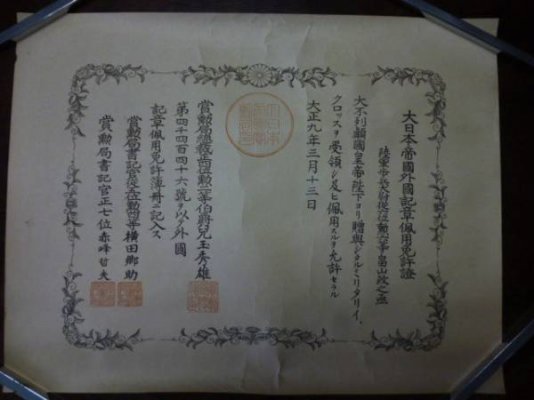 大日本帝國外國記章佩用免許證
陸軍歩兵大尉從六位勲六等畠山政之丞
大不列顛國皇帝陛下ヨリ贈與シタルミリタリイ、
クロッスヲ受領シ及ヒ佩用スルヲ允許セラル
大正九年三月十三日
賞勲局總裁正四位勲二等伯爵兒玉秀雄
第四千四百四十六號ヲ以テ外國
記章佩用免許簿冊ニ記入ス
賞勲局書記官從五位勲四等横田郷助
賞勲局書記官正七位赤峰